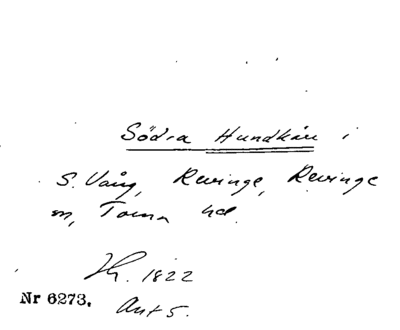 Södra Hundkärr i
S. Vång, Revinge, Revinge
sn, Torna hd.
Jh. 1822
Nr 6273. Akt 5.